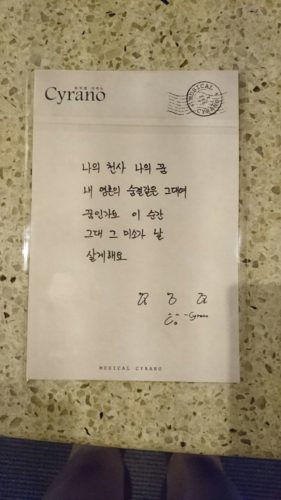 뮤지컬 시라노
Cyrano
MUSICAL
CYRANO
나의 천사 나의 꿈
내 영혼의 숨결같은 그대여
꿈인가요 이 순간
그대 그 미소가 날
살게해요
-Cyrano
MUSICAL CYRANO